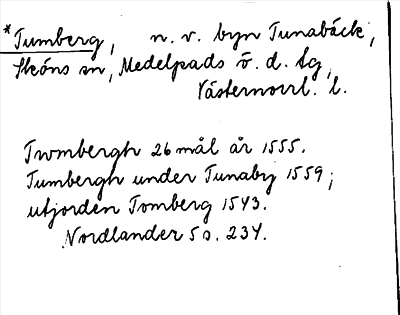 *Tumberg, n. v. byn Tunabäck,
Sköns sn, Medelpads ö. d. tg,
Västernorrl. l.
Twmbergh 26 mål år 1555.
Tumbergh under Tunaby 1559;
utjorden Tomberg 1543.
Nordlander 5 s. 234.